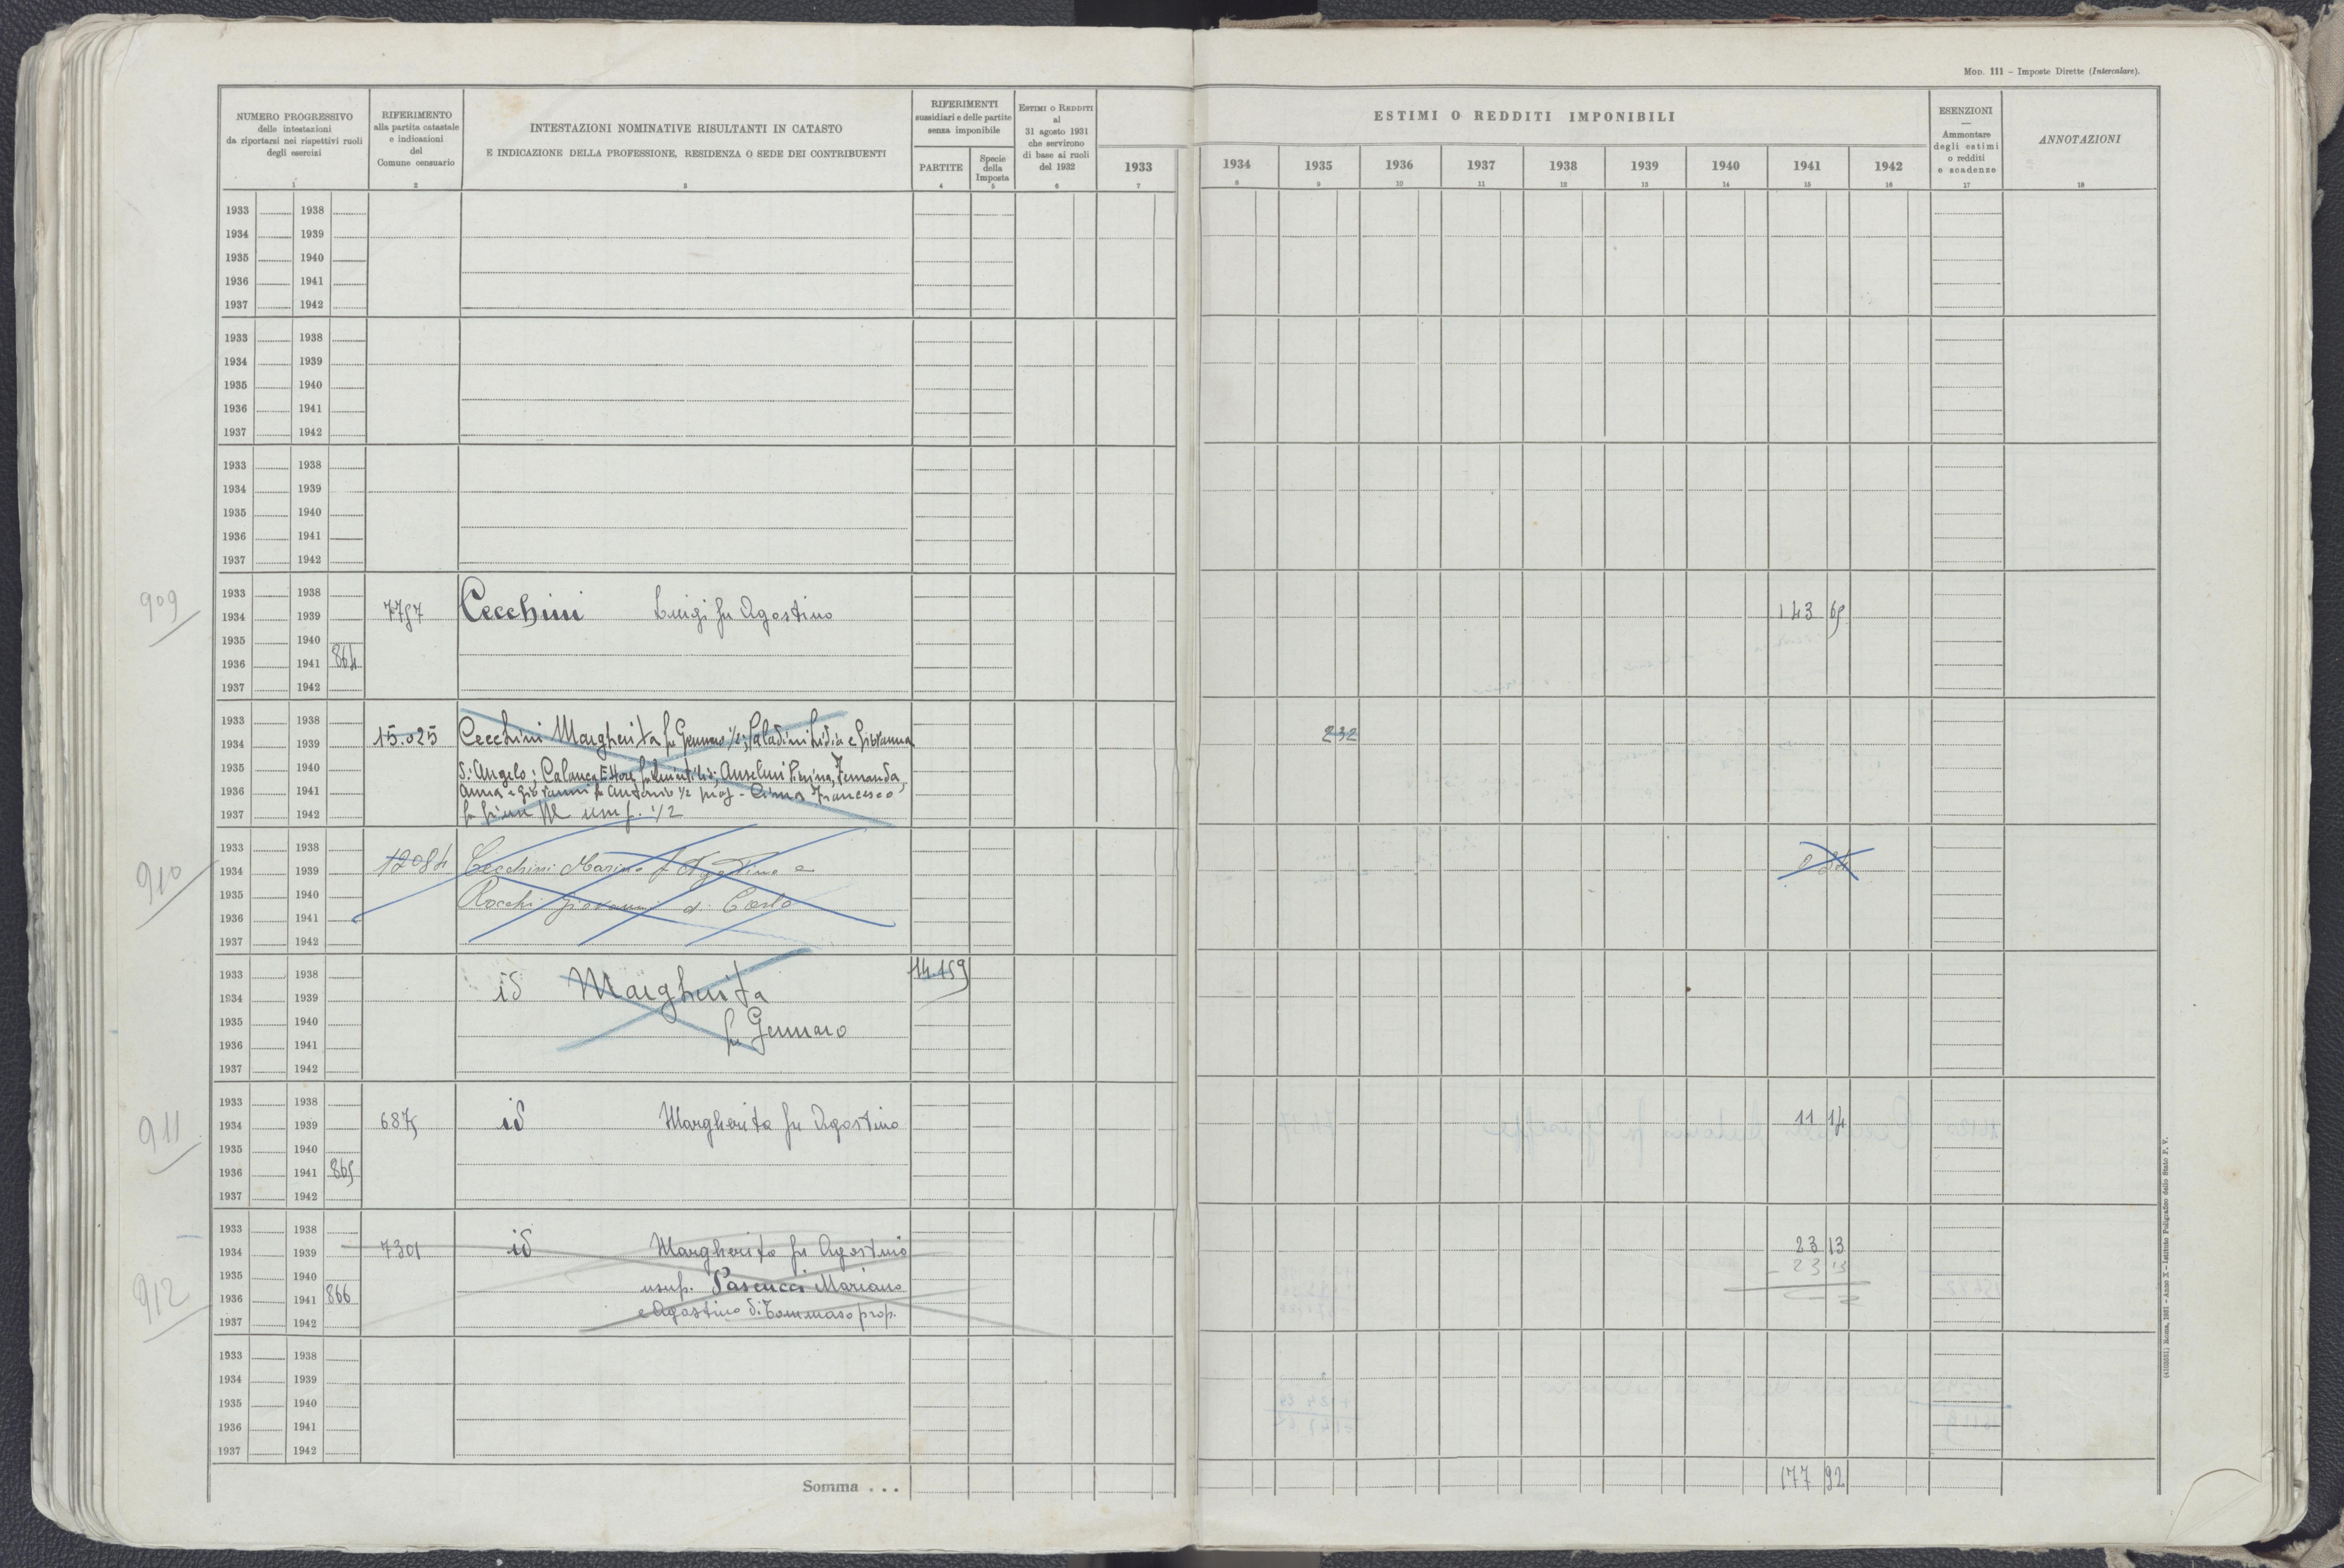 MOD. 111 – Imposte Dirette (Intercalare).
NUMERO PROGRESSIVO
delle intestazioni
da riportarsi nei rispettivi ruoli
degli esercizi
1
RIFERIMENTO
alla partita catastale
e indicazioni
del
Comune censuario
2
INTESTAZIONI NOMINATIVE RISULTANTI IN CATASTO
E INDICAZIONE DELLA PROFESSIONE, RESIDENZA O SEDE DEI CONTRIBUENTI
3
RIFERIMENTI
sussidiari e delle partite
senza imponibile
PARTITE
4
Specie
della
Imposta
5
ESTIMI O REDDITI
al
31 agosto 1931
che servirono
di base ai ruoli
del 1932
6
1933
7
ESTIMI O REDDITI IMPONIBILI
1934 1935 1936 1937 1938 1939 1940 1941 1942
8 9 10 11 12 13 14 15 16
ESENZIONI
—
Ammontare
degli estimi
o redditi
e scadenze
17
ANNOTAZIONI
18
1933 1938
1934 1939
1935 1940
1936 1941
1937 1942
1933 1938
1934 1939
1935 1940
1936 1941
1937 1942
1933 1938
1934 1939
1935 1940
1936 1941
1937 1942
909
1933 1938
1934 1939 Cecchini Luigi fu Agostino 143 65
1935 1940
1936 1941 864
1937 1942
1933 1938
1934 1939 15.025 Cecchini Margherita fu Gennaro 1/2; Paladini Lidia e Giovanna 232
1935 1940 di Angelo; Ettore Anselmi Fernanda,
1936 1941 Anna e Giovanni fu Antonio 1/2 prop - Francesco
1937 1942 fu 1/2
910
1933 1938
1934 1939 12084 Cecchini Marino f Agostino e
1935 1940 Rocchi Giovanni di Carlo
1936 1941
1937 1942
1933 1938 14.159
1934 1939 id Margherita
1935 1940 fu Gennaro
1936 1941
1937 1942
911
1933 1938
1934 1939 6875 id Margherita fu Agostino 11 14
1935 1940
1936 1941 865
1937 1942
912
1933 1938
1934 1939 7301 id Margherita fu Agostino 23 13
1935 1940 usuf. Pascucci Mariano - 23 13
1936 1941 866 e Agostino di Tommaso prop.
1937 1942
1933 1938
1934 1939
1935 1940
1936 1941
1937 1942
Somma . . . 177 92
(4103031) Roma, 1931 - Anno X - Istituto Poligrafico dello Stato P. V.